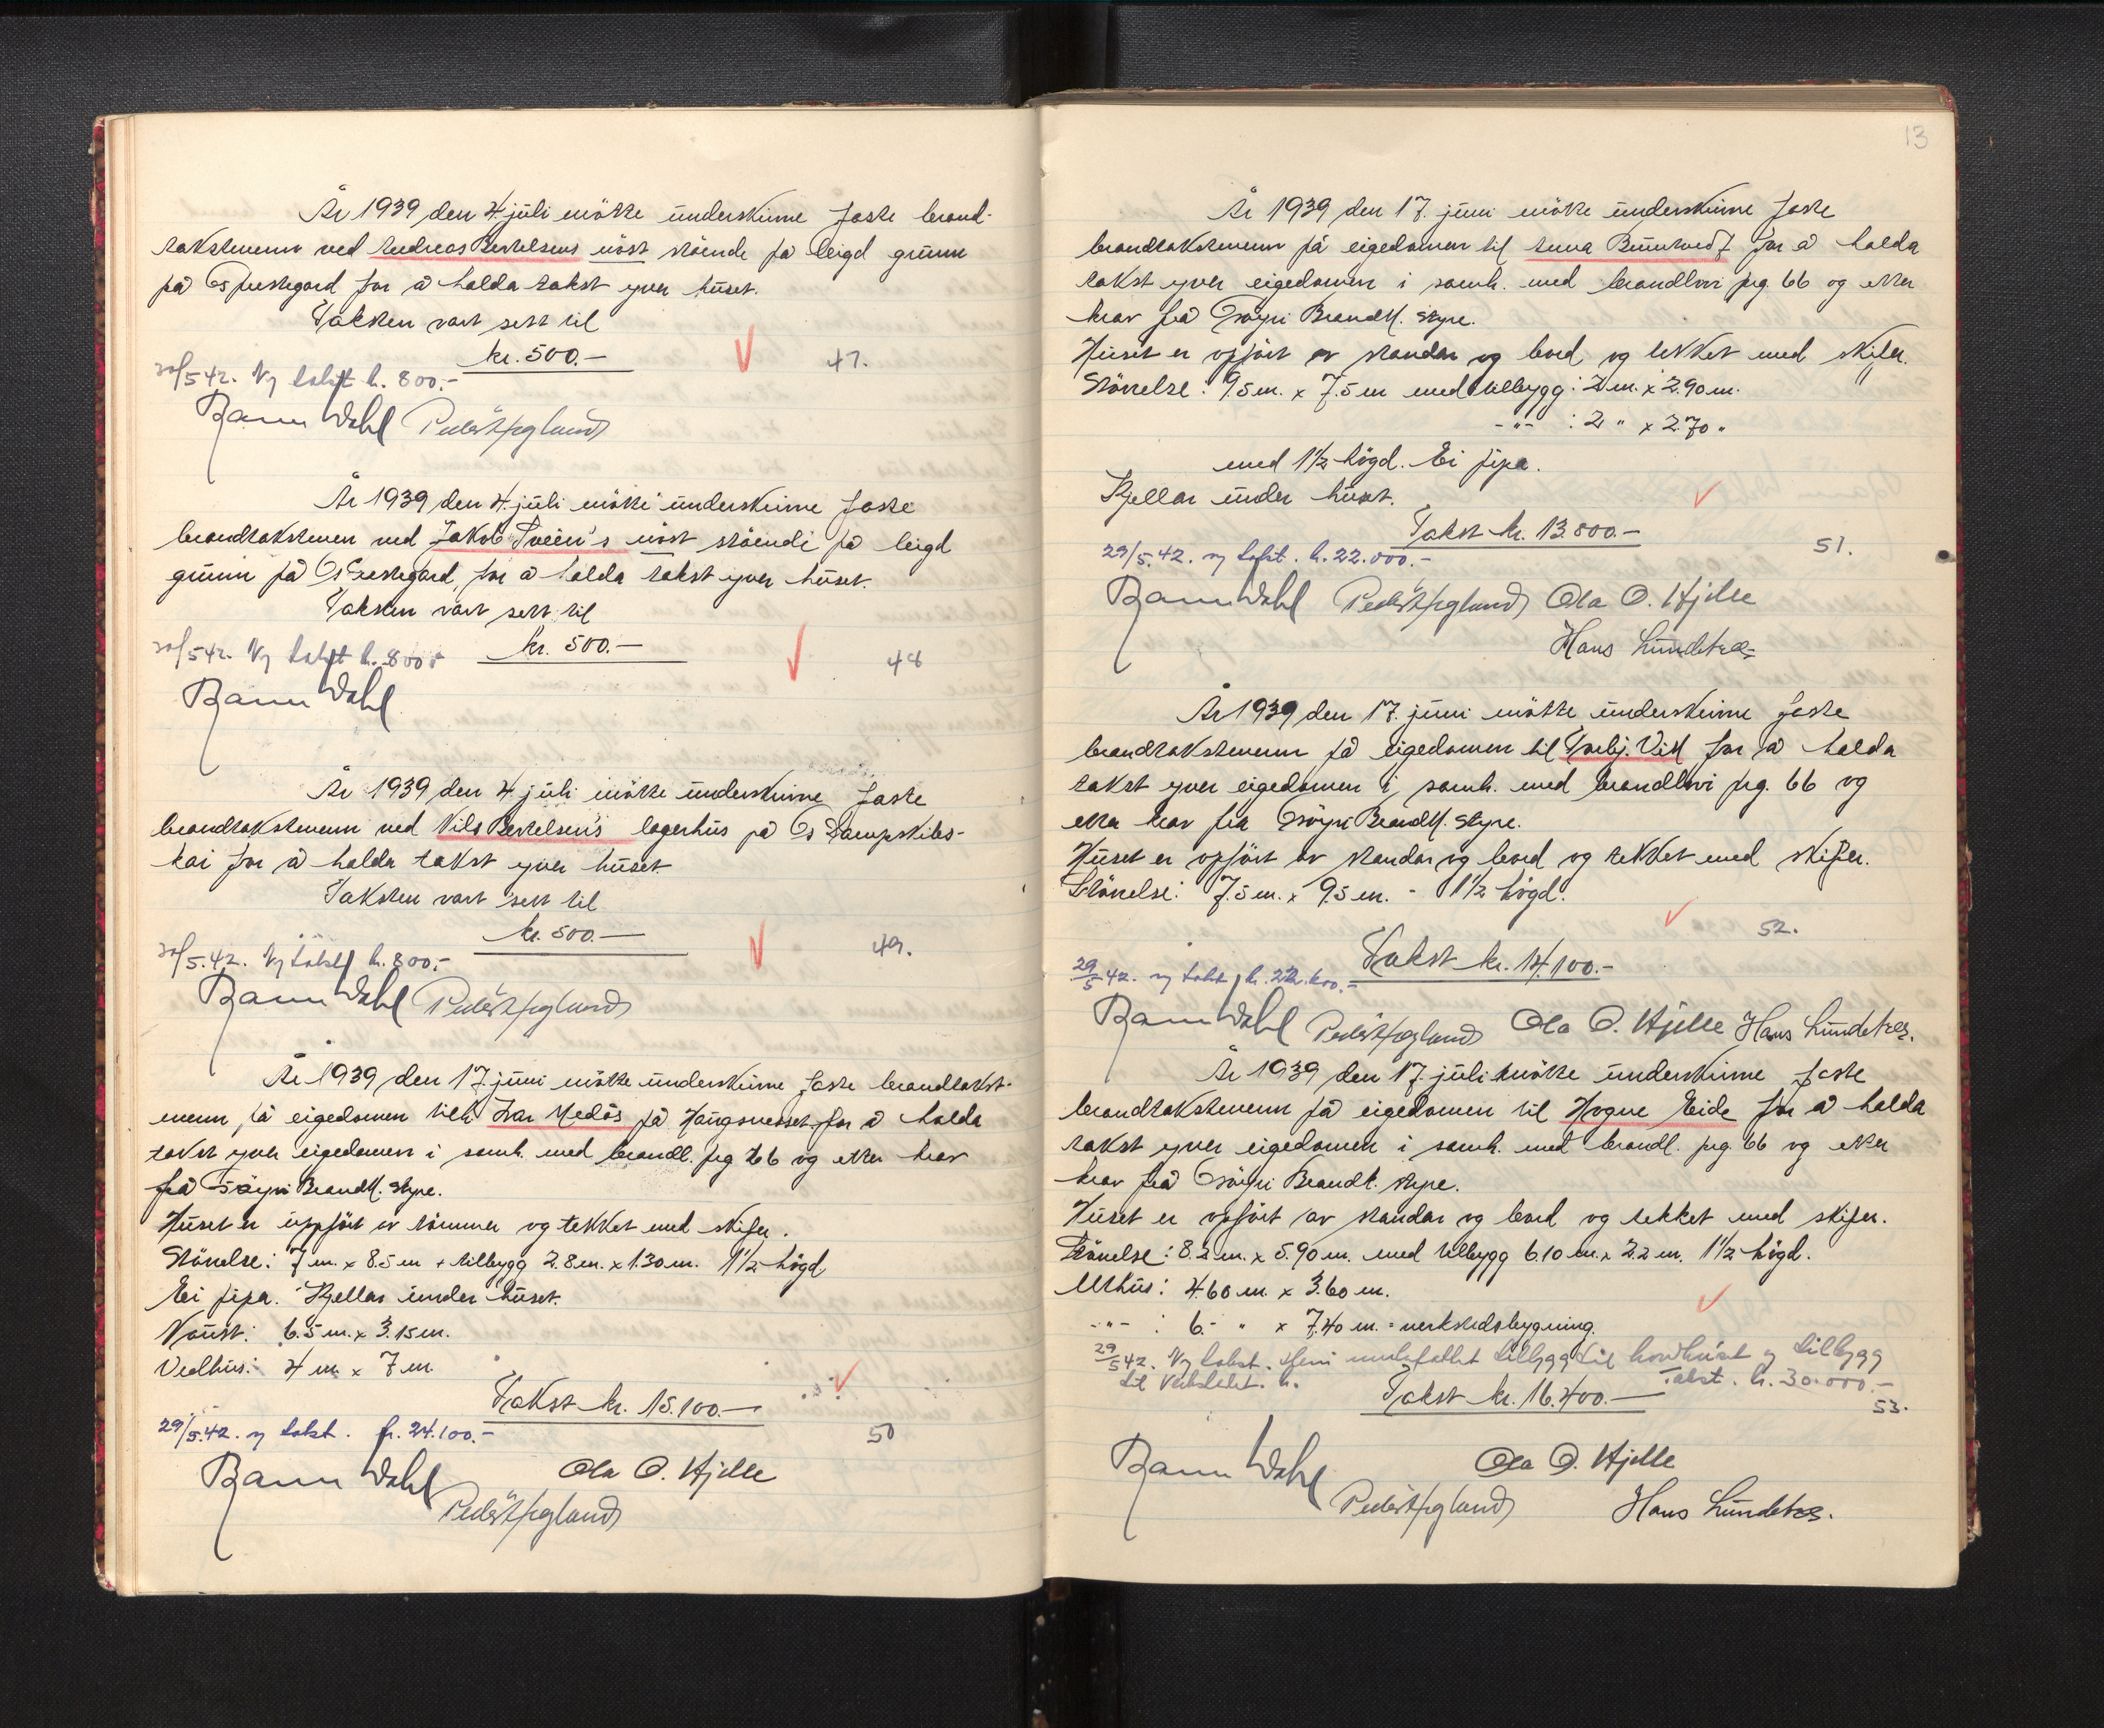 År 1939 den 4. juli møtte underskrivne faste brand-
takstmenn ved Andreas Bertelsens nøst stående på leigd grunn
på Os prestegard for å halda takst yver huset.
Taksten vart sett til
kr. 500.-
47.
20/5 42. Ny takst kr. 800.-
Bann Dahl Peder Høgland
År 1939 den 4. juli møtte underskrivne faste
brandtakstmenn ved Jakob Tveien's nøst ståendi på leigd
grunn på Os Prestegard, for å halda takst yver huset.
Taksten vart sett til
kr. 500.-
20/5 42. Ny takst kr. 800.-
48
Bann Dahl
År 1939 den 4. juli møtte underskrivne faste
brandtakstmenn ved Nils Bertelsen's lagerhus på Os Dampskibs-
kai for å halda takst yver huset.
Taksten vart sett til
kr. 500.-
49.
20/5.42. Ny takst kr. 800.-
Bann Dahl Peder Høgland
År 1939 den 17. juni møtte underskrivne faste brandtakst-
menn på eigedomen til Ivar Medås på Haugsnesset for å halda
takst yver eigedomen i samh. med brandl. prg 66 og etter krav
frå Osøyri Brandk. styre.
Huset er uppført av tømmer og tekket med skifer.
Størrelse: 7 m. x 8.5 m + tilbygg 2.8 m. x 1.30 m. 1½ høgd
Ei pipa. Kjellar under huset.
Naust: 6.5 m. x 3.15 m.
Vedhus: 4 m x 7 m.
Takst kr. 15.100.-
29/5.42. ny takst. kr. 24.100.-
50
Bann Dahl Ola O. Hjelle
Peder Høgland
13
År 1939 den 17. juni møtte underskrivne faste
brandtakstmenn på eigedomen til Anna Bruntvedt for å halda
takst yver eigedomen i samh. med brandlovi prg. 66 og etter
krav frå Osøyri Brandk. styre.
Huset er opført av standar og bord og tekket med skifer.
Størrelse: 9.5 m. x 7.5 m med tilbygg: 2 m. x 2.90 m.
-"- : 2 " x 2.70 "
med 1½ høgd. Ei pipa.
Kjellar under huset.
Takst kr. 13.800.-
29/5.42. ny takst. kr. 22.000.-
51.
Bann Dahl Peder Høgland Ola O. Hjelle
Hans Lundetræ
År 1939 den 17. juni møtte underskrivne faste
brandtakstmenn på eigedomen til Torbj. Vik for å halda
takst yver eigedomen i samh. med brandlovi prg. 66 og
etter krav frå Osøyri Brandk. styre.
Huset er opført av standar og bord og tekket med skifer.
Størrelse: 7.5 m. x 9.5 m. - 1½ høgd.
52.
Takst kr. 14.100.-
29/5 42. ny takst kr. 22.600.-
Bann Dahl Peder Høgland Ola O. Hjelle Hans Lundetræ.
År 1939 den 17. juli møtte underskrivne faste
brandtakstmenn på eigedomen til Hogne Eide for å halda
takst yver eigedomen i samh. med brandl. prg. 66 og etter
krav frå Osøyri Brandk. styre.
Huset er opført av standar og bord og tekket med skifer.
Størrelse: 8.2 m. x 5.90 m. med tilbygg 6.10 m. x 2.2 m. 1½ høgd.
Uthus: 4.60 m. x 3.60 m.
-"- : 6.- " x 7.40 m. = verkstedsbygning.
29/5 42. Ny takst. Heri innbefattet tilbygg til hovedhuset og tilbygg
til verkstedet. Takst. kr. 30.000.-
Takst kr. 16.400.-
53.
Bann Dahl Ola O. Hjelle
Peder Høgland Hans Lundetræ.